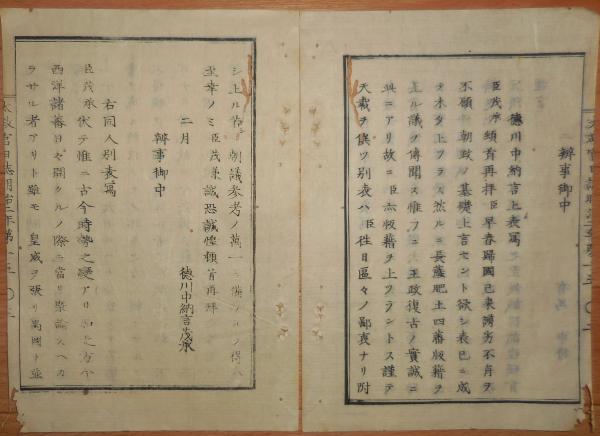 辨事御中
徳川中納言上表寫
臣茂承頓首再拜臣早春歸國已来湾劣不肖ヲ
不顧朝政ノ基礎上言セント欲シ表已ニ成
テ未タ上フラス然ルニ長薩肥土四藩版籍ヲ
上ルノ議ヲ傳聞ス惟フニ王政復古ノ實誠ニ
此ニアリ故ニ臣亦版籍ヲ上フラントス謹テ
天裁ヲ俟ツ別表ハ臣往日區々ノ鄙衷ナリ附
シ上ル若シ朝議参考ノ萬一ニ備フルヲ得ハ
至幸ノミ臣茂承誠恐誠惶頓首再拜
二月
徳川中納言茂承
辨事御中
右同人別表寫
臣茂承伏テ惟ニ古今時勢ノ變アリ
西洋諸蕃日々ニ開クルノ際ニ當リ
ラサル者アリト雖モ皇威ヲ張リ萬國ト並
太政官日誌明治二年第